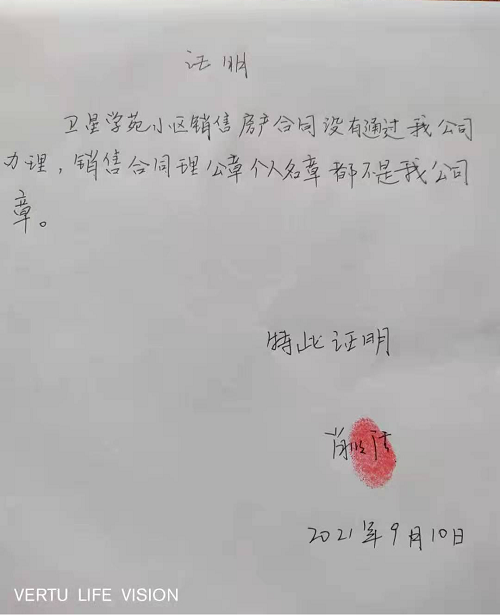 证明
卫星学苑小区销售房产合同没有通过我公司
办理，销售合同理公章个人名章都不是我公司
章。
特此证明
肖
2021年9月10日
VERTU LIFE VISION